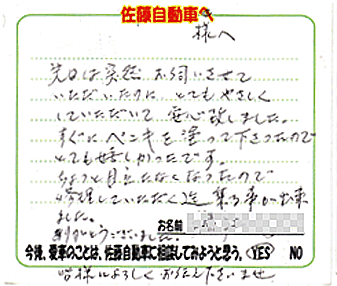 佐藤自動車へ
様へ
先日は突然お伺いさせて
いただいたのに とてもやさしく
していただいて 安心致しました。
すぐにペンキを塗って下さったので
とても嬉しかったです。
ちょっと目立たなくなったので
修理していただく迄 乗る事が出来
ました。
お名前
ありがとうございました。
今後、愛車のことは、佐藤自動車に相談してみようと思う。 YES NO
皆様によろしくお伝え下さいませ